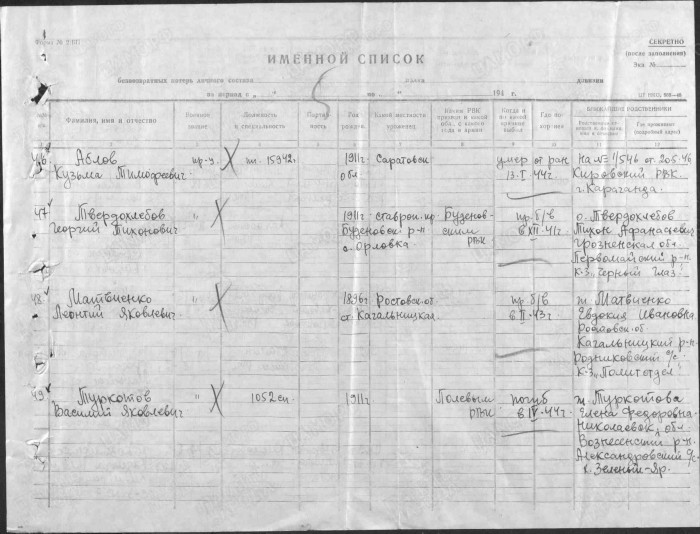 Форма № 2/БП
СЕКРЕТНО
(после заполнения)
Экз №
ИМЕННОЙ СПИСОК
безвозвратных потерь личного состава полка дивизии
за период с „ " по „ " 194 г.
Фамилия, имя и отчество
Воинское звание
Должность и специальность
Партийность
Год рожден.
Какой местности уроженец
Каким РВК призван и какой обл., с какого года в армии
Когда и по какой причине выбыл
Где похоронен
БЛИЖАЙШИЕ РОДСТВЕННИКИ
Год проживают (подробный адрес)
46 Аблов Кузьма Тимофеевич
пр-у.
пп. 15942.
1911г. Саратовск обл
умер от ран
13.I 44г.
На № 1/546 от 20.5.46
Кировский РВК.
г. Караганда.
47 Твердохлебов Георгий Тихонович
"
1911г. Ставроп. кр
Буденовск р-н
с. Орловка
Буденов-
ским
РВК
пр б/в
в XII. 41г.
о. Твердохлебов
Тихон Афанасьевич
Грозненская обл
Первомайский р-н
К-з „Черный Глаз"
48 Матвиенко Леонтий Яковлевич
"
1896г Ростовск. об
ст. Кагальницкая
пр б/в
в II. 43г.
ж. Матвиенко
Евдокия Ивановна
Ростовск. об
Кагальницкий р-н
Родниковский с/с
К-з „Политотдел"
49 Туркотов Василий Яковлевич
"
1052 сп.
1911г
Полевым
РВК
погиб
в IV. 44г.
ж. Туркотова
Елена Федоровна
Николаевск. обл
Вознесенский р-н
Александровский с/с
х. Зеленый-Яр.